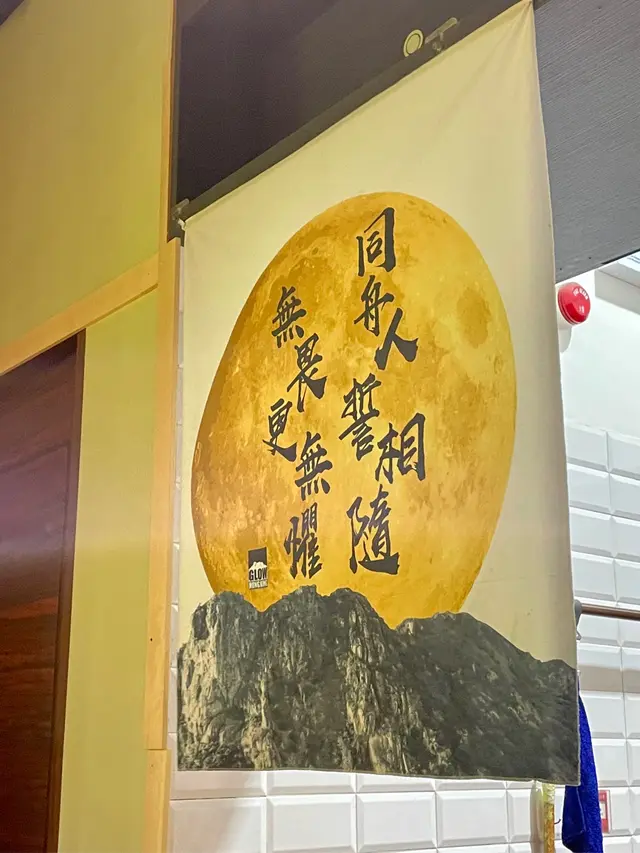 同舟人誓相隨
無畏更無懼
GLOW
HONG KONG